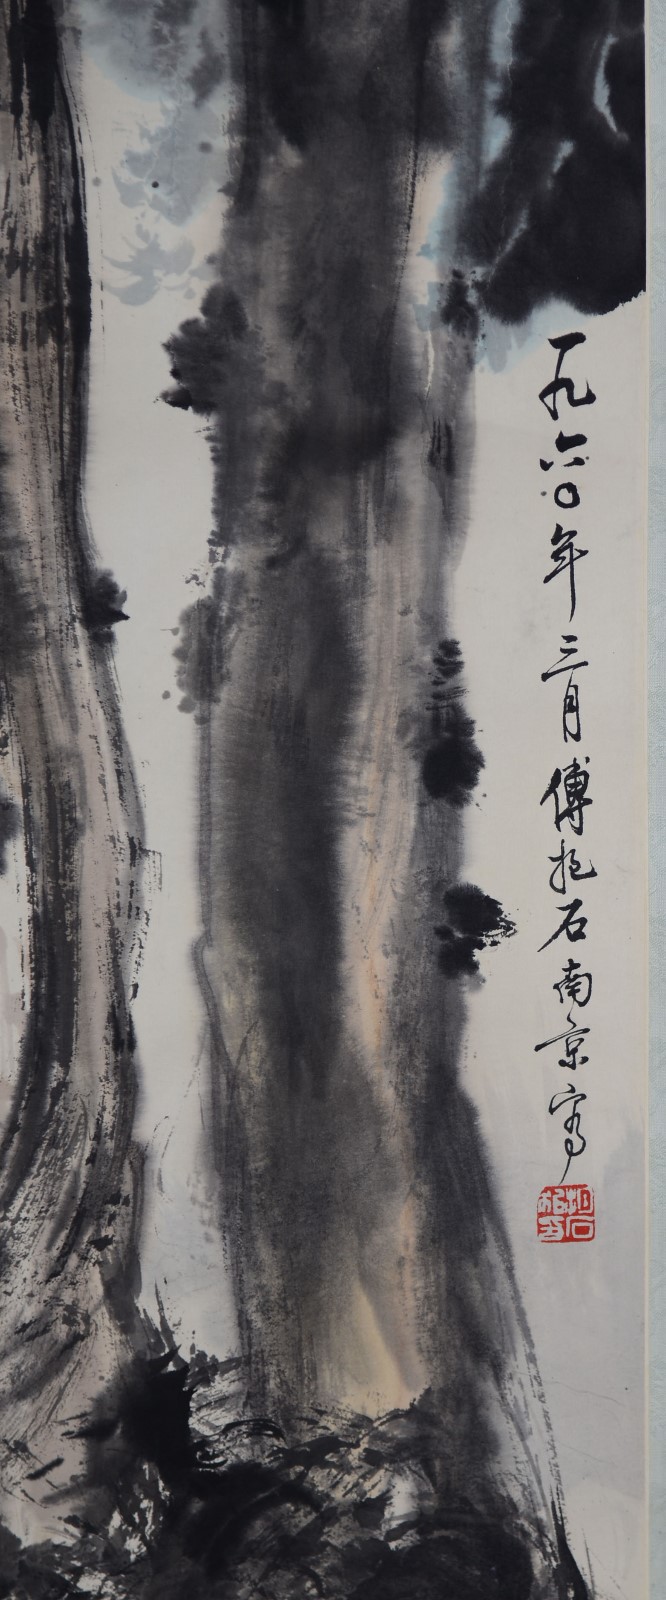 一九六〇年三月傅抱石南京寫
抱石